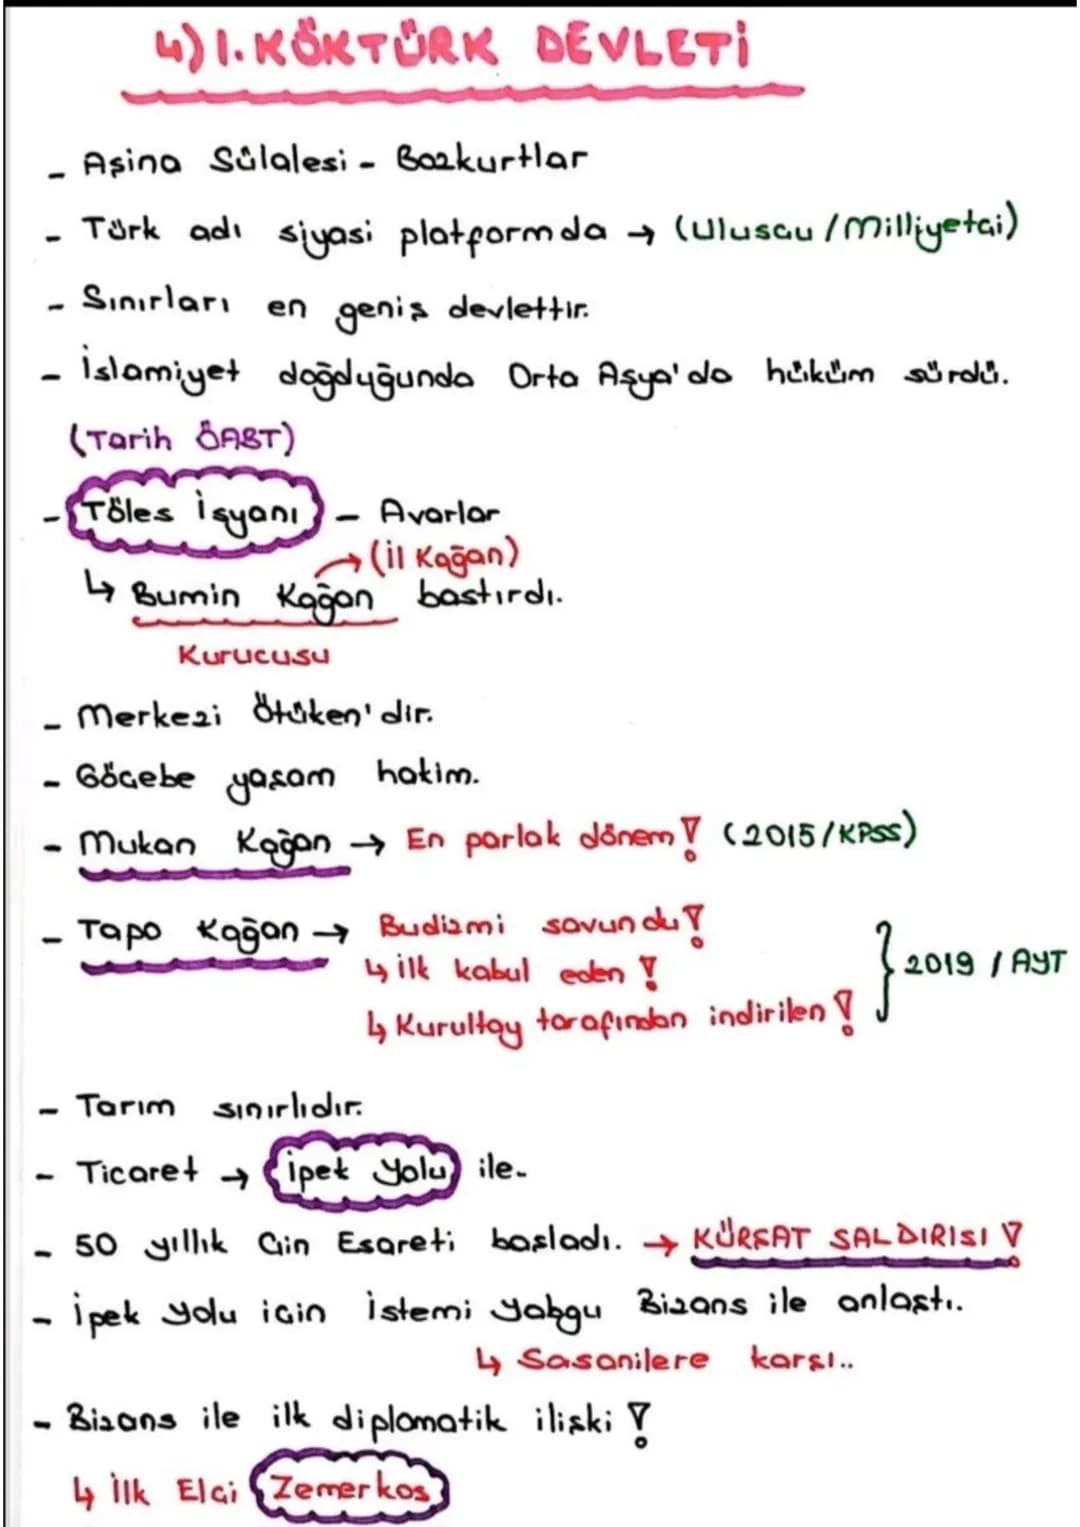 4) I. KÖKTÜRK DEVLETİ
- Aşina Sülalesi - Bozkurtlar
- Türk adı siyasi platformda → (Ulusçu / Milliyetçi)
- Sınırları en geniş devlettir.
- İslamiyet doğduğunda Orta Asya'da hüküm sürdü.
(Tarih ÖABT)
- Töles İsyanı - Avarlar
→ (İl Kağan)
↳ Bumin Kağan bastırdı.
Kurucusu
- Merkezi Ötüken'dir.
- Göçebe yaşam hakim.
- Mukan Kağan → En parlak dönem! (2015/KPSS)
- Tapo Kağan → Budizmi savundu!
↳ ilk kabul eden!
} 2019 / AYT
↳ Kurultay tarafından indirilen!
- Tarım sınırlıdır.
- Ticaret → İpek Yolu ile.
- 50 yıllık Çin Esareti başladı. → KÜRŞAT SALDIRISI!
- İpek yolu için İstemi Yabgu Bizans ile anlaştı.
↳ Sasanilere karşı..
- Bizans ile ilk diplomatik ilişki!
↳ İlk Elçi Zemerkos